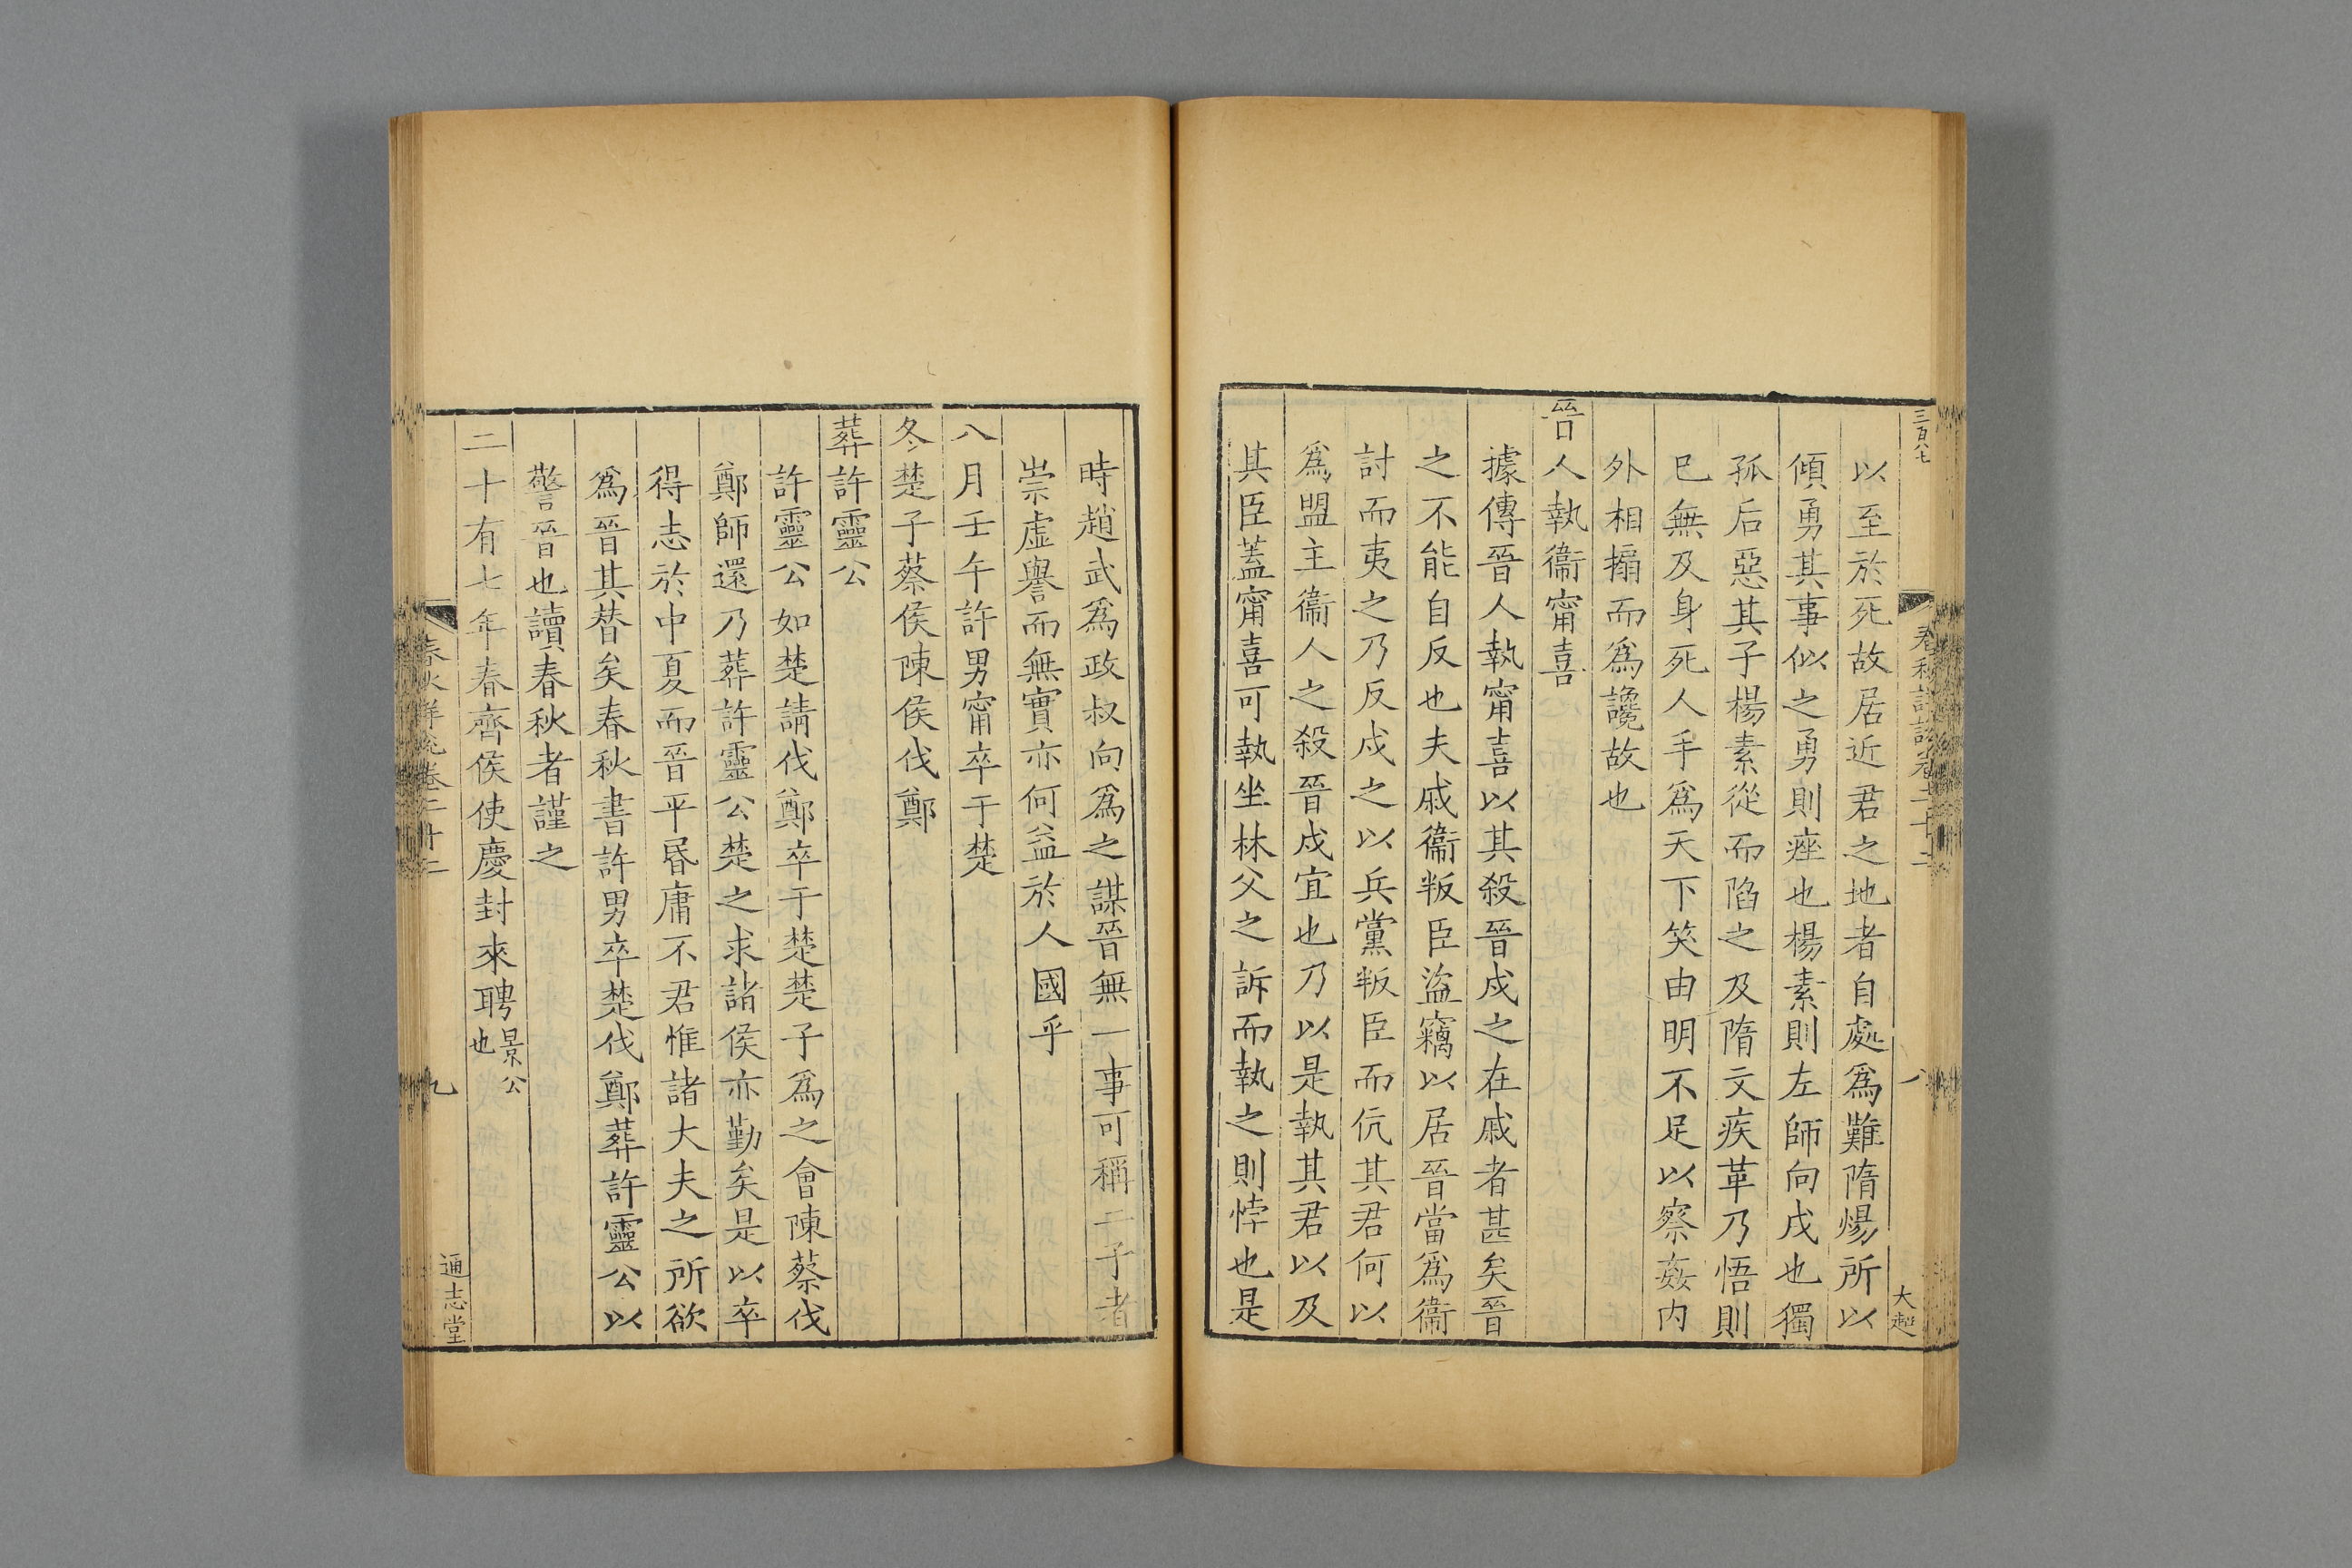 三百八七
春秋詳說卷二十二
八
大起
以至於死故居近君之地者自處爲難隋煬所以
傾勇其事似之勇則痤也楊素則左師向戌也獨
孤后惡其子楊素從而陷之及隋文疾革乃悟則
巳無及身死人手爲天下笑由明不足以察姦内
外相搧而爲讒故也
晉人執衞甯喜
據傳晉人執甯喜以其殺晉戍之在戚者甚矣晉
之不能自反也夫戚衞叛臣盜竊以居晉當爲衞
討而夷之乃反戍之以兵黨叛臣而伉其君何以
爲盟主衞人之殺晉戍宜也乃以是執其君以及
其臣蓋甯喜可執坐林父之訴而執之則悖也是
時趙武爲政叔向爲之謀晉無一事可稱二子者
崇虛譽而無實亦何益於人國乎
八月壬午許男甯卒于楚
冬楚子蔡侯陳侯伐鄭
葬許靈公
許靈公如楚請伐鄭卒于楚楚子爲之會陳蔡伐
鄭師還乃葬許靈公楚之求諸侯亦勤矣是以卒
得志於中夏而晉平昬庸不君惟諸大夫之所欲
爲晉其替矣春秋書許男卒楚伐鄭葬許靈公以
警晉也讀春秋者謹之
二十有七年春齊侯使慶封來聘景公也
春秋詳說卷二十二
九
通志堂